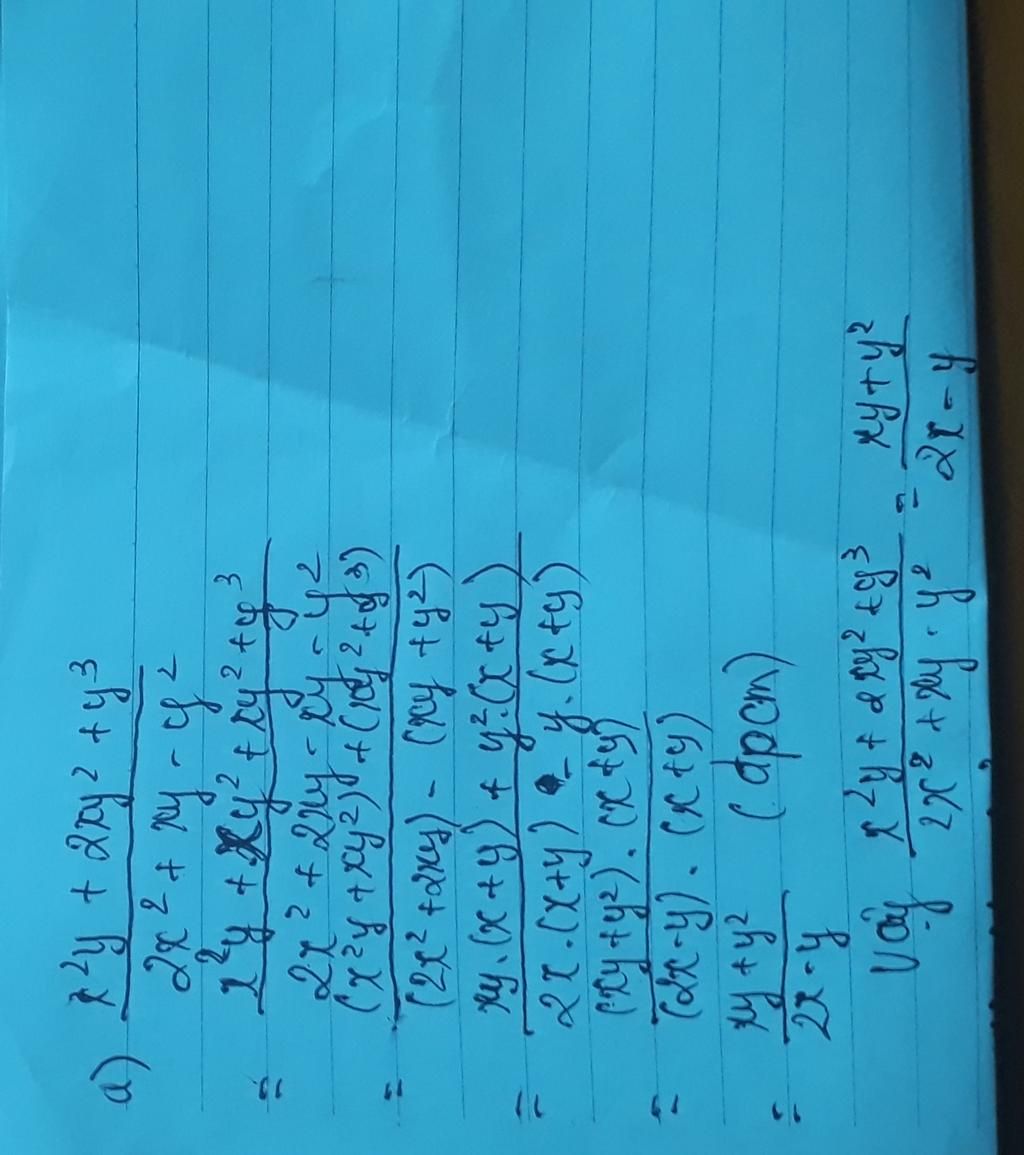 a) x²y + 2xy² + y³ / 2x² + xy - y²
= x²y + xy² + xy² + y³ / 2x² + 2xy - xy - y²
= (x²y + xy²) + (xy² + y³) / (2x² + 2xy) - (xy + y²)
= xy.(x+y) + y².(x+y) / 2x.(x+y) - y.(x+y)
= (xy+y²).(x+y) / (2x-y).(x+y)
= xy + y² / 2x - y (đpcm)
Vậy x²y + 2xy² + y³ / 2x² + xy - y² = xy + y² / 2x - y